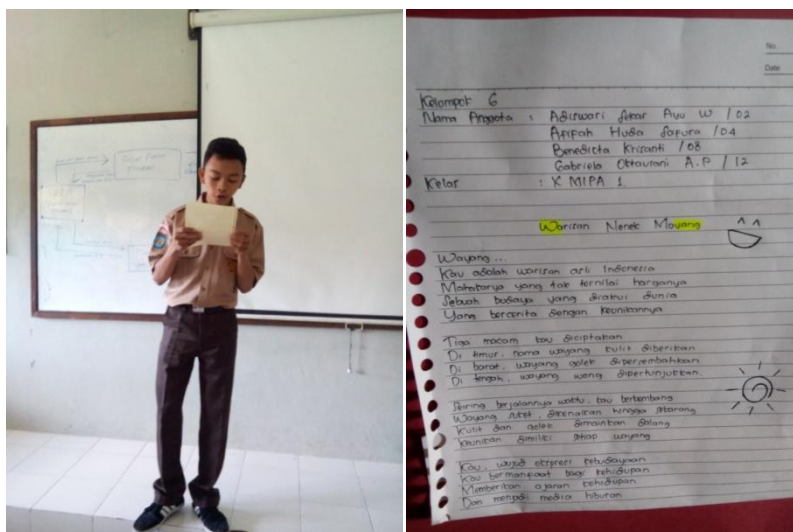 No.
Date
Kelompok 6
Nama Anggota : Adiswari Sekar Ayu W / 02
Afifah Huda Sapura / 04
Benedicta Krisanti / 08
Gabriela Oktaviani A.P / 12
Kelas : X MIPA 1
Warisan Nenek Moyang
Wayang...
Kau adalah warisan asli Indonesia
Mahakarya yang tak ternilai harganya
Sebuah budaya yang diakui dunia
Yang bercerita dengan keunikannya
Tiga macam kau diciptakan
Di timur, nama wayang kulit diberikan
Di barat, wayang golek dipersembahkan
Di tengah, wayang wong dipertunjukkan
Seiring berjalannya waktu, kau berkembang
Wayang suket, dikenalkan hingga sekarang
Kulit dan golek dimainkan dalang
Keunikan dimiliki setiap wayang
Kau, wujud ekspresi kebudayaan
Kau bermanfaat bagi kehidupan
Memberikan ajaran kehidupan
Dan menjadi media hiburan